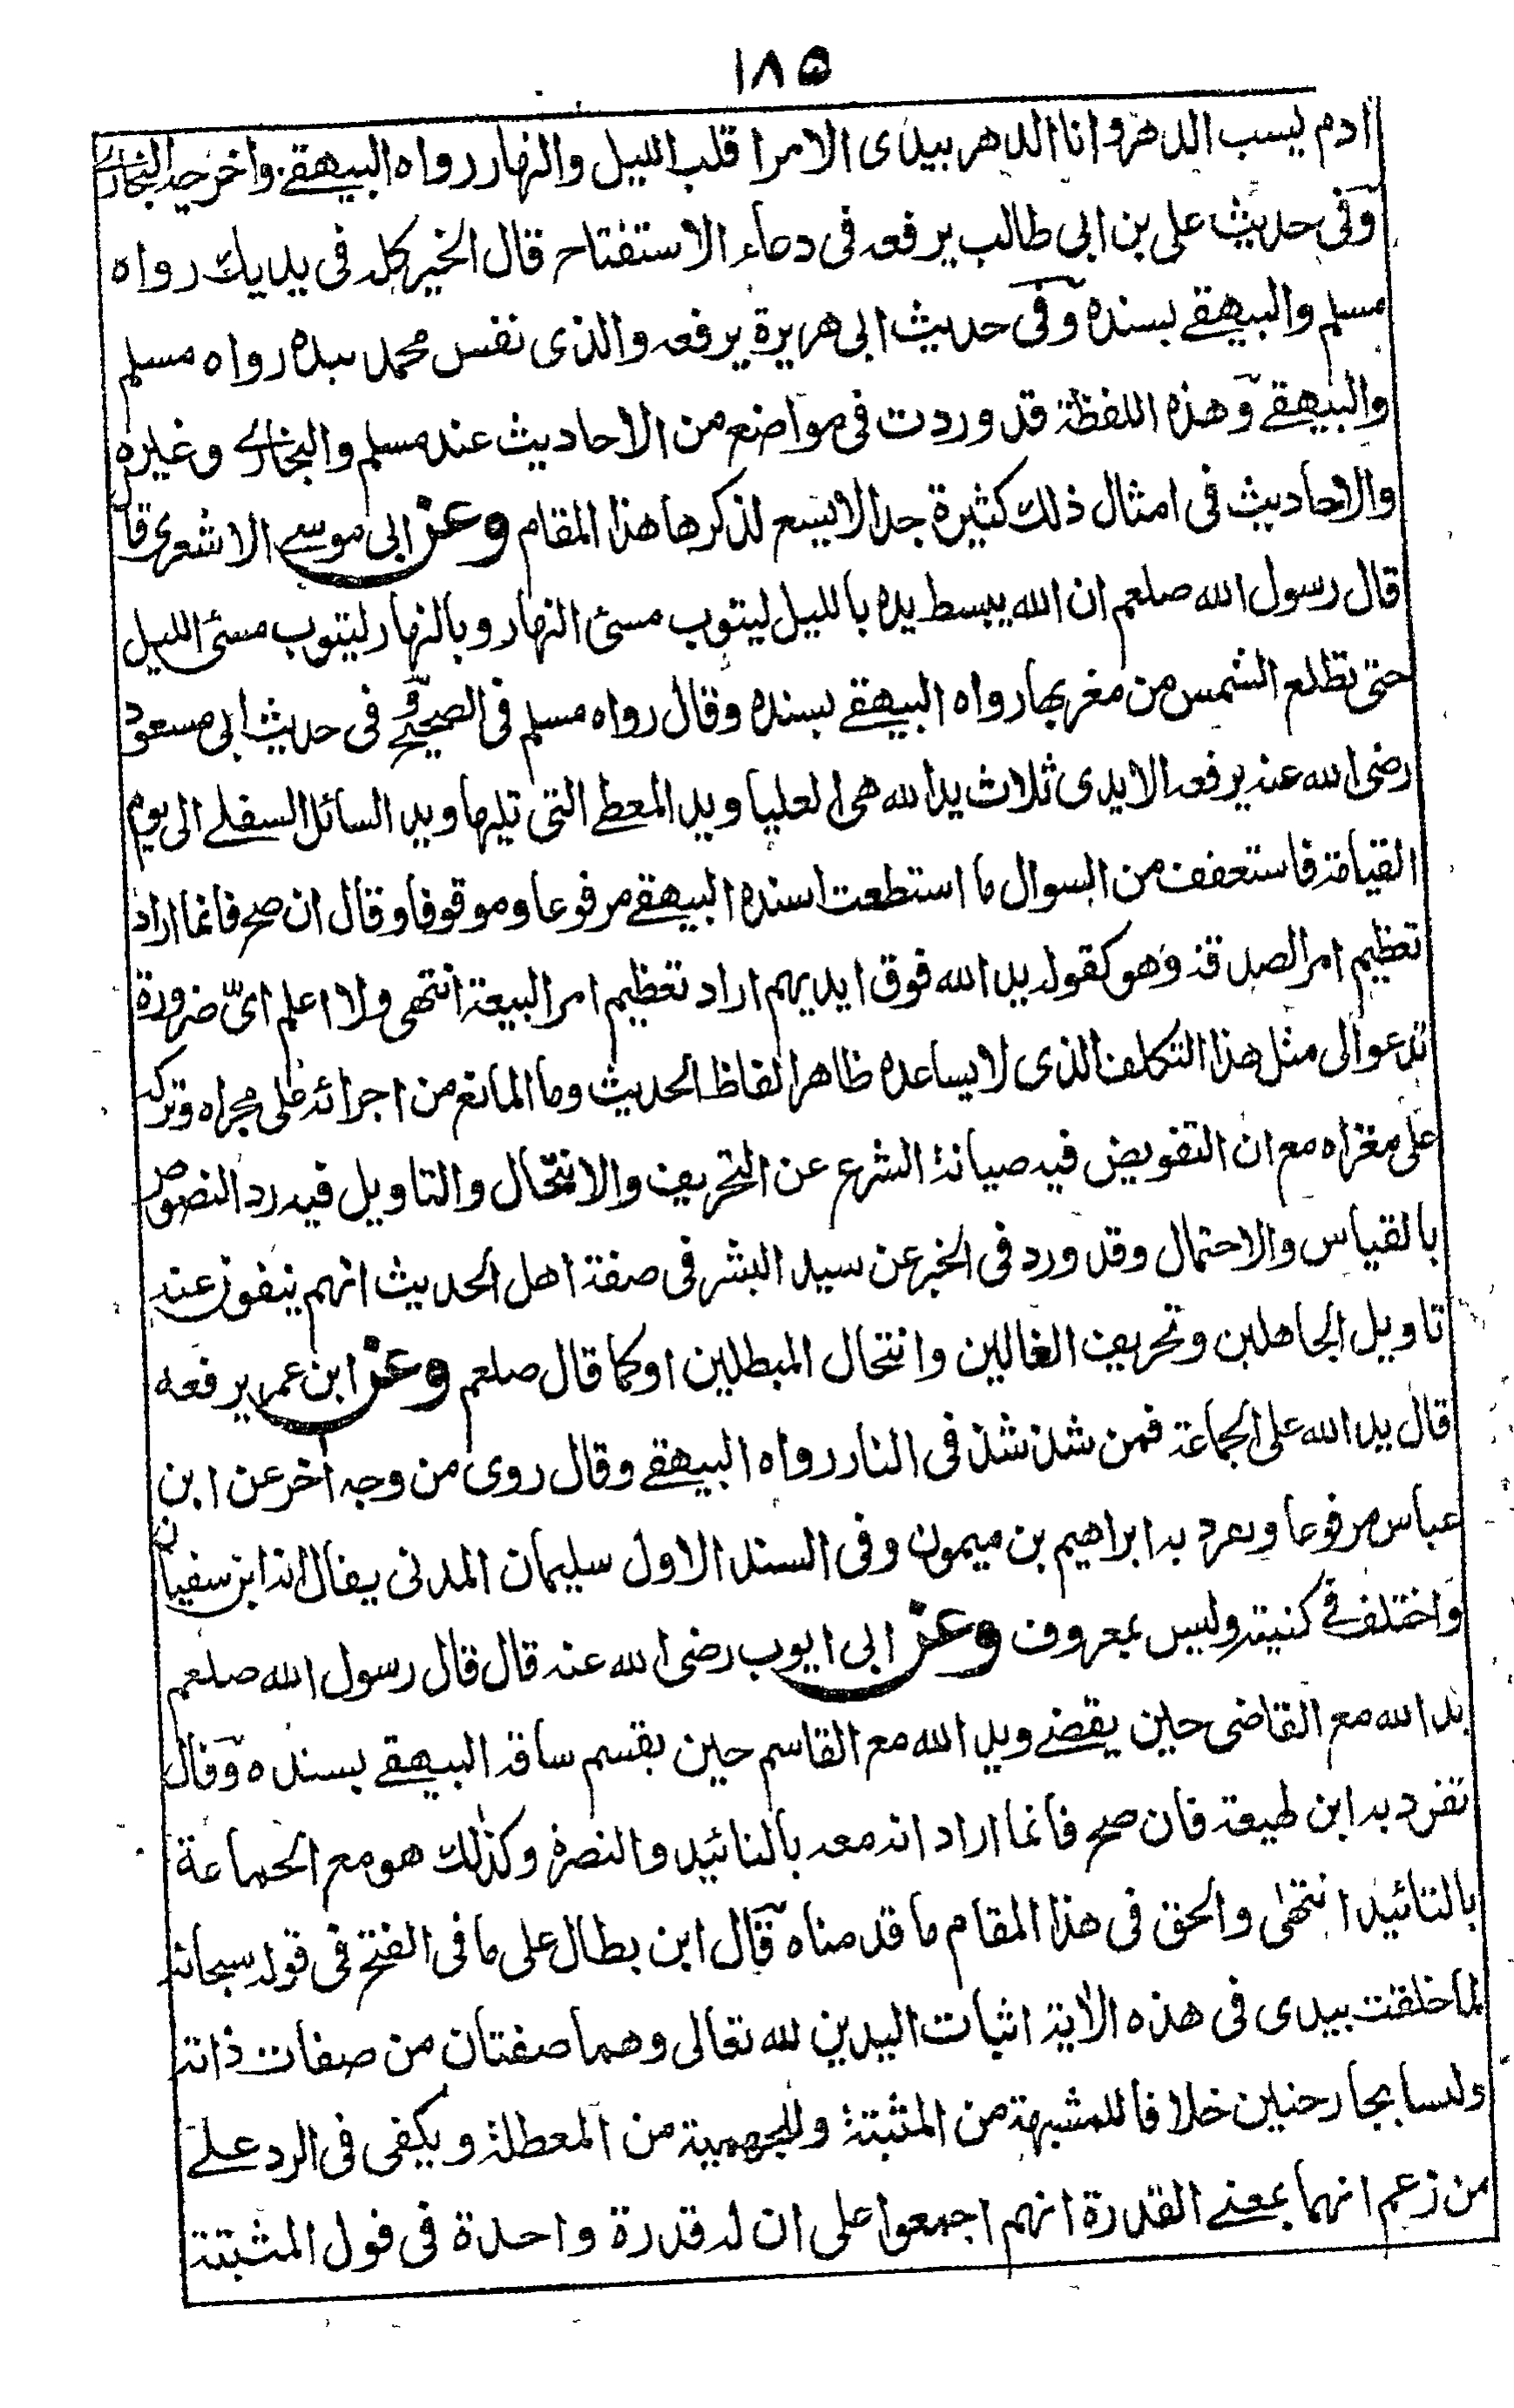 ١٨٥
ادم يسب الدهر وانا الدهر بيدى الامر اقلب الليل والنهار رواه البيهقے واخرجه البخارى
وفى حديث على بن ابى طالب يرفعه فى دعاء الاستفتاح قال الخير كله فى يديك رواه
مسلم والبيهقے بسنده وفى حديث ابى هريرة يرفعه والذى نفس محمد بيده رواه مسلم
والبيهقے وهذه اللفظة قد وردت فى مواضع من الاحاديث عند مسلم والبخارے وغيره
والاحاديث فى امثال ذلك كثيرة جدا لا يسع لذكرها هذا المقام وعن ابى موسے الاشعرى قال
قال رسول الله صلعم ان الله يبسط يده بالليل ليتوب مسئ النهار وبالنهار ليتوب مسئ الليل
حتى تطلع الشمس من مغربها رواه البيهقے بسنده وقال رواه مسلم فى الصحيح وفى حديث ابى مسعود
رضى الله عنه يرفعه الايدى ثلاث يد الله هى العليا ويد المعطے التى تليها ويد السائل السفلے الى يوم
القيامة فاستعفف من السوال ما استطعت اسنده البيهقے مرفوعا وموقوفا وقال ان صح فانما اراد
تعظيم امر الصدقة وهو كقوله يد الله فوق ايديهم اراد تعظيم امر البيعة انتهى ولا اعلم اىّ ضرورة
تدعو الى مثل هذا التكلف الذى لا يساعده ظاهر الفاظ الحديث وما المانع من اجرائه على مجراه وتركه
على مغزاه مع ان التفويض فيه صيانة الشرع عن التحريف والانتحال والتاويل فيه رد النصوص
بالقياس والاحتمال وقد ورد فى الخبر عن سيد البشر فى صفة اهل الحديث انهم ينفون عنه
تاويل الجاهلين وتحريف الغالين وانتحال المبطلين او كما قال صلعم وعن ابن عمر يرفعه
قال يد الله على الجماعة فمن شذ شذ فى النار رواه البيهقے وقال روى من وجه اخر عن ابن
عباس مرفوعا وتفرد به ابراهيم بن ميمون وفى السند الاول سليمان المدنى يقال انه ابن سفيان
واختلف فے كنيته وليس بمعروف وعن ابى ايوب رضى الله عنه قال قال رسول الله صلعم
يد الله مع القاضى حين يقضے ويد الله مع القاسم حين يقسم ساقه البيهقے بسنده وقال
تفرد به ابن لهيعة فان صح فانما اراد انه معه بالتائيد والنصرة وكذلك هو مع الجماعة
بالتائيد انتهى والحق فى هذا المقام ما قدمناه قال ابن بطال على ما فى الفتح فى قوله سبحانه
لما خلقت بيدى فى هذه الاية اثبات اليدين لله تعالى وهما صفتان من صفات ذاته
وليسا بجارحتين خلافا للمشبهة من المثبتة وللجهمية من المعطلة ويكفى فى الرد علے
من زعم انهما بمعنے القدرة انهم اجمعوا على ان له قدرة واحدة فى قول المثبتة